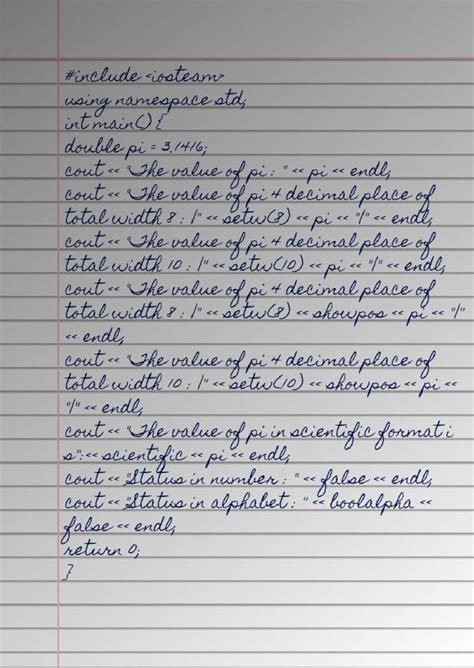 #include <iosteam>
using namespace std;
int main() {
double pi = 3.1416;
cout << "The value of pi : " << pi << endl;
cout << "The value of pi 4 decimal place of
total width 8 : |" << setw(8) << pi << "|" << endl;
cout << "The value of pi 4 decimal place of
total width 10 : |" << setw(10) << pi << "|" << endl;
cout << "The value of pi 4 decimal place of
total width 8 : |" << setw(8) << showpos << pi << "|"
<< endl;
cout << "The value of pi 4 decimal place of
total width 10 : |" << setw(10) << showpos << pi <<
"|" << endl;
cout << "The value of pi in scientific format i
s";<< scientific << pi << endl;
cout << "Status in number : " << false << endl;
cout << "Status in alphabet : " << boolalpha <<
false << endl;
return 0;
}